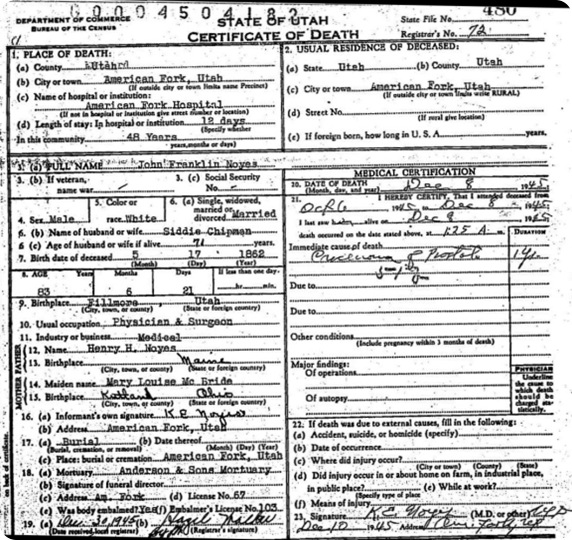 00004504182
480
DEPARTMENT OF COMMERCE
BUREAU OF THE CENSUS
STATE OF UTAH
CERTIFICATE OF DEATH
State File No.
Registrar's No. 72
1. PLACE OF DEATH:
(a) County Utah
(b) City or town American Fork, Utah
(If outside city or town limits name Precinct)
(c) Name of hospital or institution:
American Fork Hospital
(If not in hospital or institution give street number or location)
(d) Length of stay: In hospital or institution 12 days
(Specify whether
In this community 48 Years
years, months or days)
2. USUAL RESIDENCE OF DECEASED:
(a) State Utah (b) County Utah
(c) City or town American Fork, Utah
(If outside city or town limits write RURAL)
(d) Street No.
(If rural give location)
(e) If foreign born, how long in U. S. A. years.
3. (a) FULL NAME John Franklin Noyes
3. (b) If veteran, name war - 3. (c) Social Security No. -
4. Sex Male 5. Color or race White 6. (a) Single, widowed, married or divorced Married
6. (b) Name of husband or wife Siddie Chipman
6 (c) Age of husband or wife if alive 71 years.
7. Birth date of deceased 5 17 1862
(Month) (Day) (Year)
8. AGE Years Months Days If less than one day.
83 6 21 hr. min.
9. Birthplace Fillmore, Utah
(City, town, or county) (State or foreign country)
10. Usual occupation Physician & Surgeon
11. Industry or business Medical
MOTHER FATHER
12. Name Henry H. Noyes
13. Birthplace Maine
(City, town, or county) (State or foreign country)
14. Maiden name Mary Louise Mc Bride
15. Birthplace Ohio
(City, town, or county) (State or foreign country)
16. (a) Informant's own signature K. E. Noyes
(b) Address American Fork, Utah
17. (a) Burial (b) Date thereof
(Burial, cremation, or removal) (Month) (Day) (Year)
(c) Place: burial or cremation American Fork, Utah
18. (a) Mortuary Anderson & Sons Mortuary
(b) Signature of funeral director
(c) Address Am. Fork (d) License No. 67
(e) Was body embalmed? Yes (f) Embalmer's License No. 103
19. (a) 1945 (b) Hazel
(Date received local registrar) (Registrar's signature)
MEDICAL CERTIFICATION
20. DATE OF DEATH Dec 8 1945
(Month, day, and year)
21. I HEREBY CERTIFY, That I attended deceased from
Oct 6 1945 to Dec 8 1945
I last saw alive on Dec 8 1945
death occurred on the date stated above, at 1:25 A.
DURATION
Immediate cause of death
Carcinoma of Prostate 1 yr.
Due to
Due to
Other conditions
(Include pregnancy within 3 months of death)
Major findings:
Of operations
Of autopsy
PHYSICIAN
Underline the cause to which death should be charged statistically.
22. If death was due to external causes, fill in the following:
(a) Accident, suicide, or homicide (specify)
(b) Date of occurrence
(c) Where did injury occur?
(City or town) (County) (State)
(d) Did injury occur in or about home on farm, in industrial place, in public place? (e) While at work?
(Specify type of place)
(f) Means of injury
23. Signature K. E. Noyes (M.D. or other)
Dec 10 1945 Address